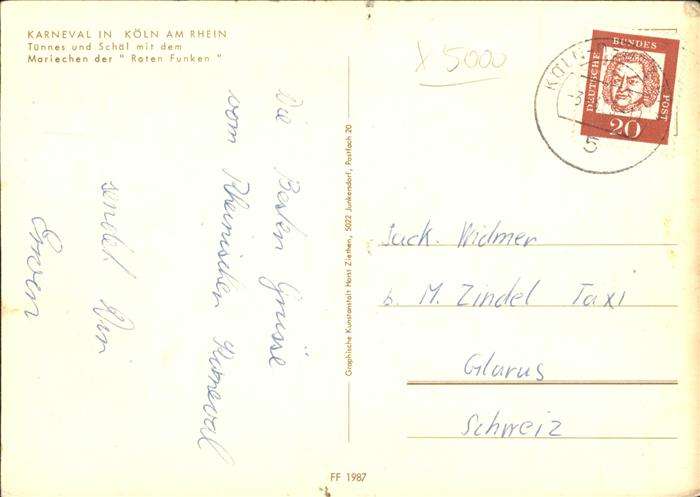 KARNEVAL IN KÖLN AM RHEIN
Tünnes und Schäl mit dem
Mariechen der " Roten Funken "
x 5000
KÖLN
5
DEUTSCHE BUNDESPOST
20
Die Besten Grüsse
vom Rheinischen Karneval
sendet Dir
Erwen
Graphische Kunstanstalt Horst Ziethen, 5022 Junkersdorf, Postfach 20
Jack. Widmer
b. M. Zindel Taxi
Glarus
Schweiz
FF 1987